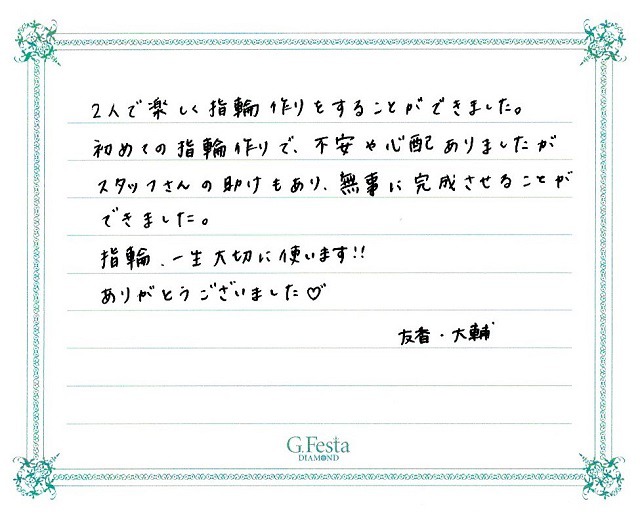 2人で楽しく指輪作りをすることができました。
初めての指輪作りで、不安や心配ありましたが
スタッフさんの助けもあり、無事に完成させることが
できました。
指輪、一生大切に使います!!
ありがとうございました♡
友香・大輔
G.Festa
DIAMOND